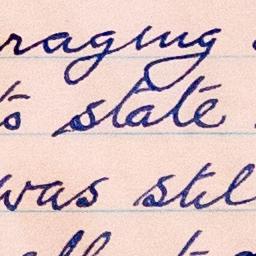 raging
to state
was stil